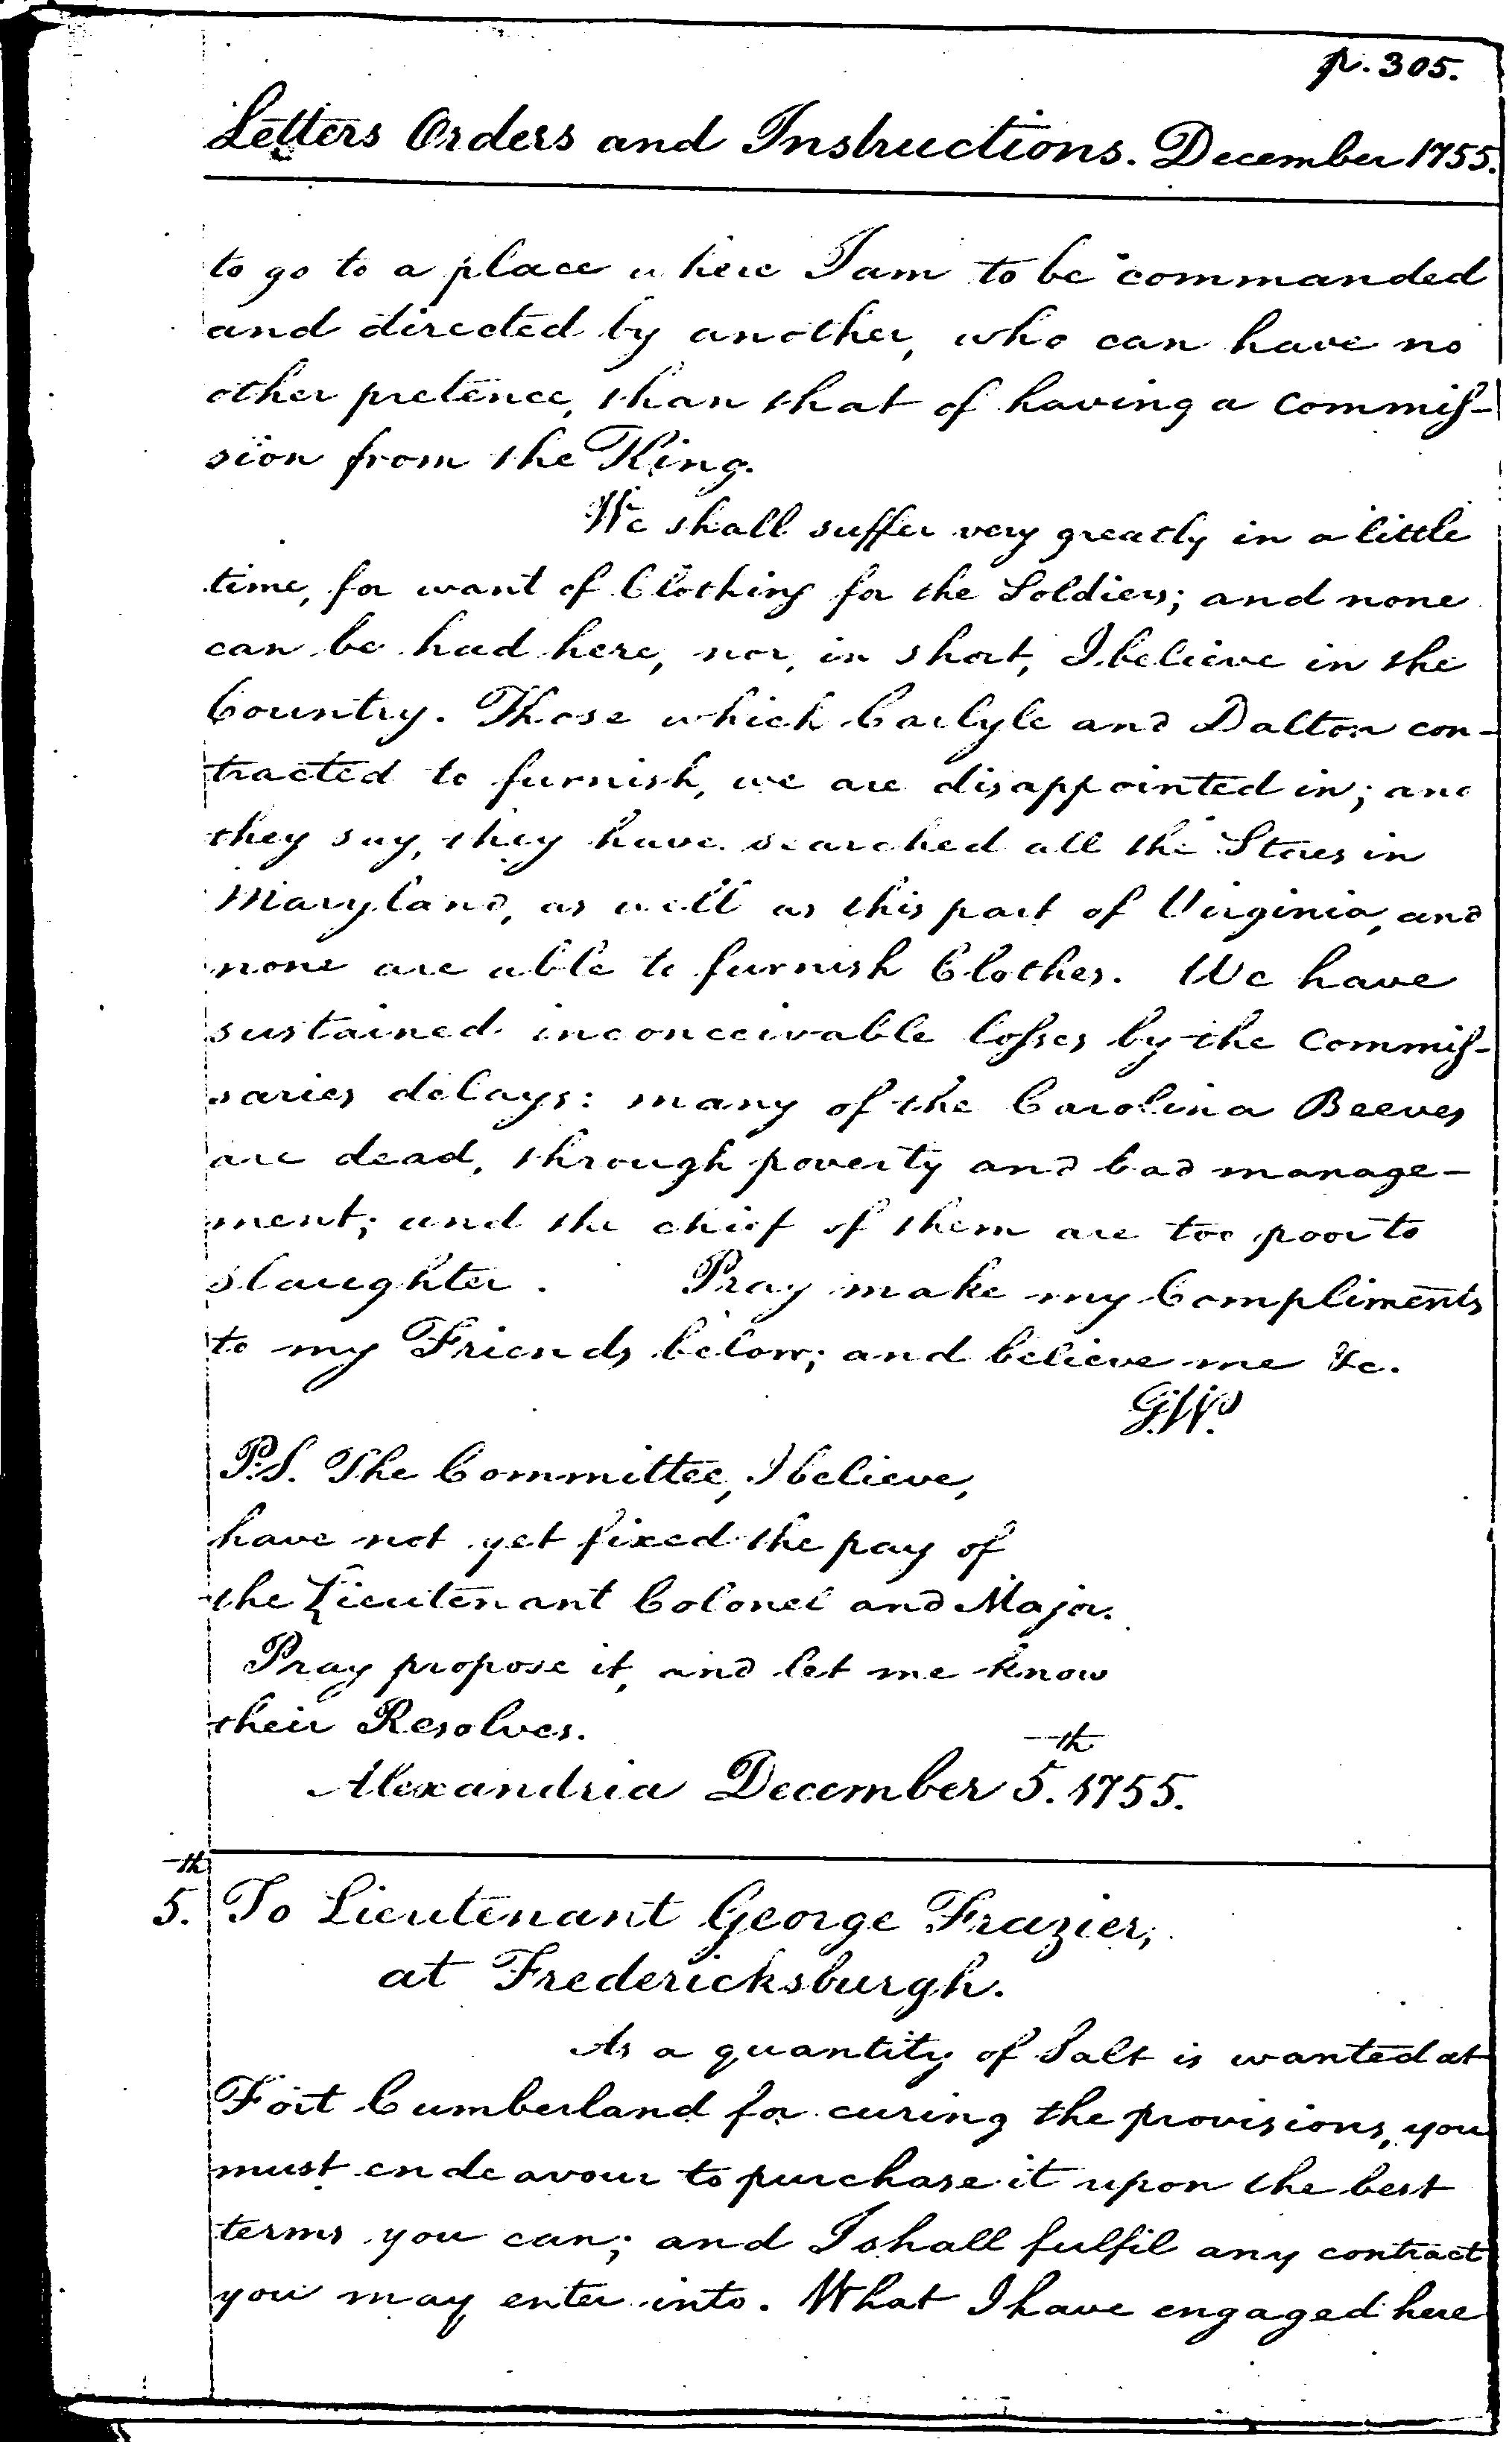 p. 305.
Letters Orders and Instructions. December 1755.
to go to a place where I am to be commanded
and directed by another, who can have no
other pretence, than that of having a commis-
sion from the King.
We shall suffer very greatly in a little
time, for want of Clothing for the Soldiers; and none
can be had here, nor, in short, I believe in the
Country. Those which Carlyle and Dalton con-
tracted to furnish, we are disappointed in; and
they say, they have searched all the Stores in
Maryland, as well as this part of Virginia, and
none are able to furnish Clothes. We have
sustained inconceivable losses by the Commis-
saries delays: many of the Carolina Beeves
are dead, through poverty and bad manage-
ment; and the chief of them are too poor to
slaughter. Pray make my Compliments
to my Friends below; and believe me &c.
G.W.
P.S. The Committee, I believe,
have not yet fixed the pay of
the Lieutenant Colonel and Major.
Pray propose it, and let me know
their Resolves.
Alexandria December 5.th 1755.
5.th To Lieutenant George Frazier,
at Fredericksburgh.
As a quantity of Salt is wanted at
Fort Cumberland for curing the provisions, you
must endeavour to purchase it upon the best
terms you can; and I shall fulfil any contract
you may enter into. What I have engaged here